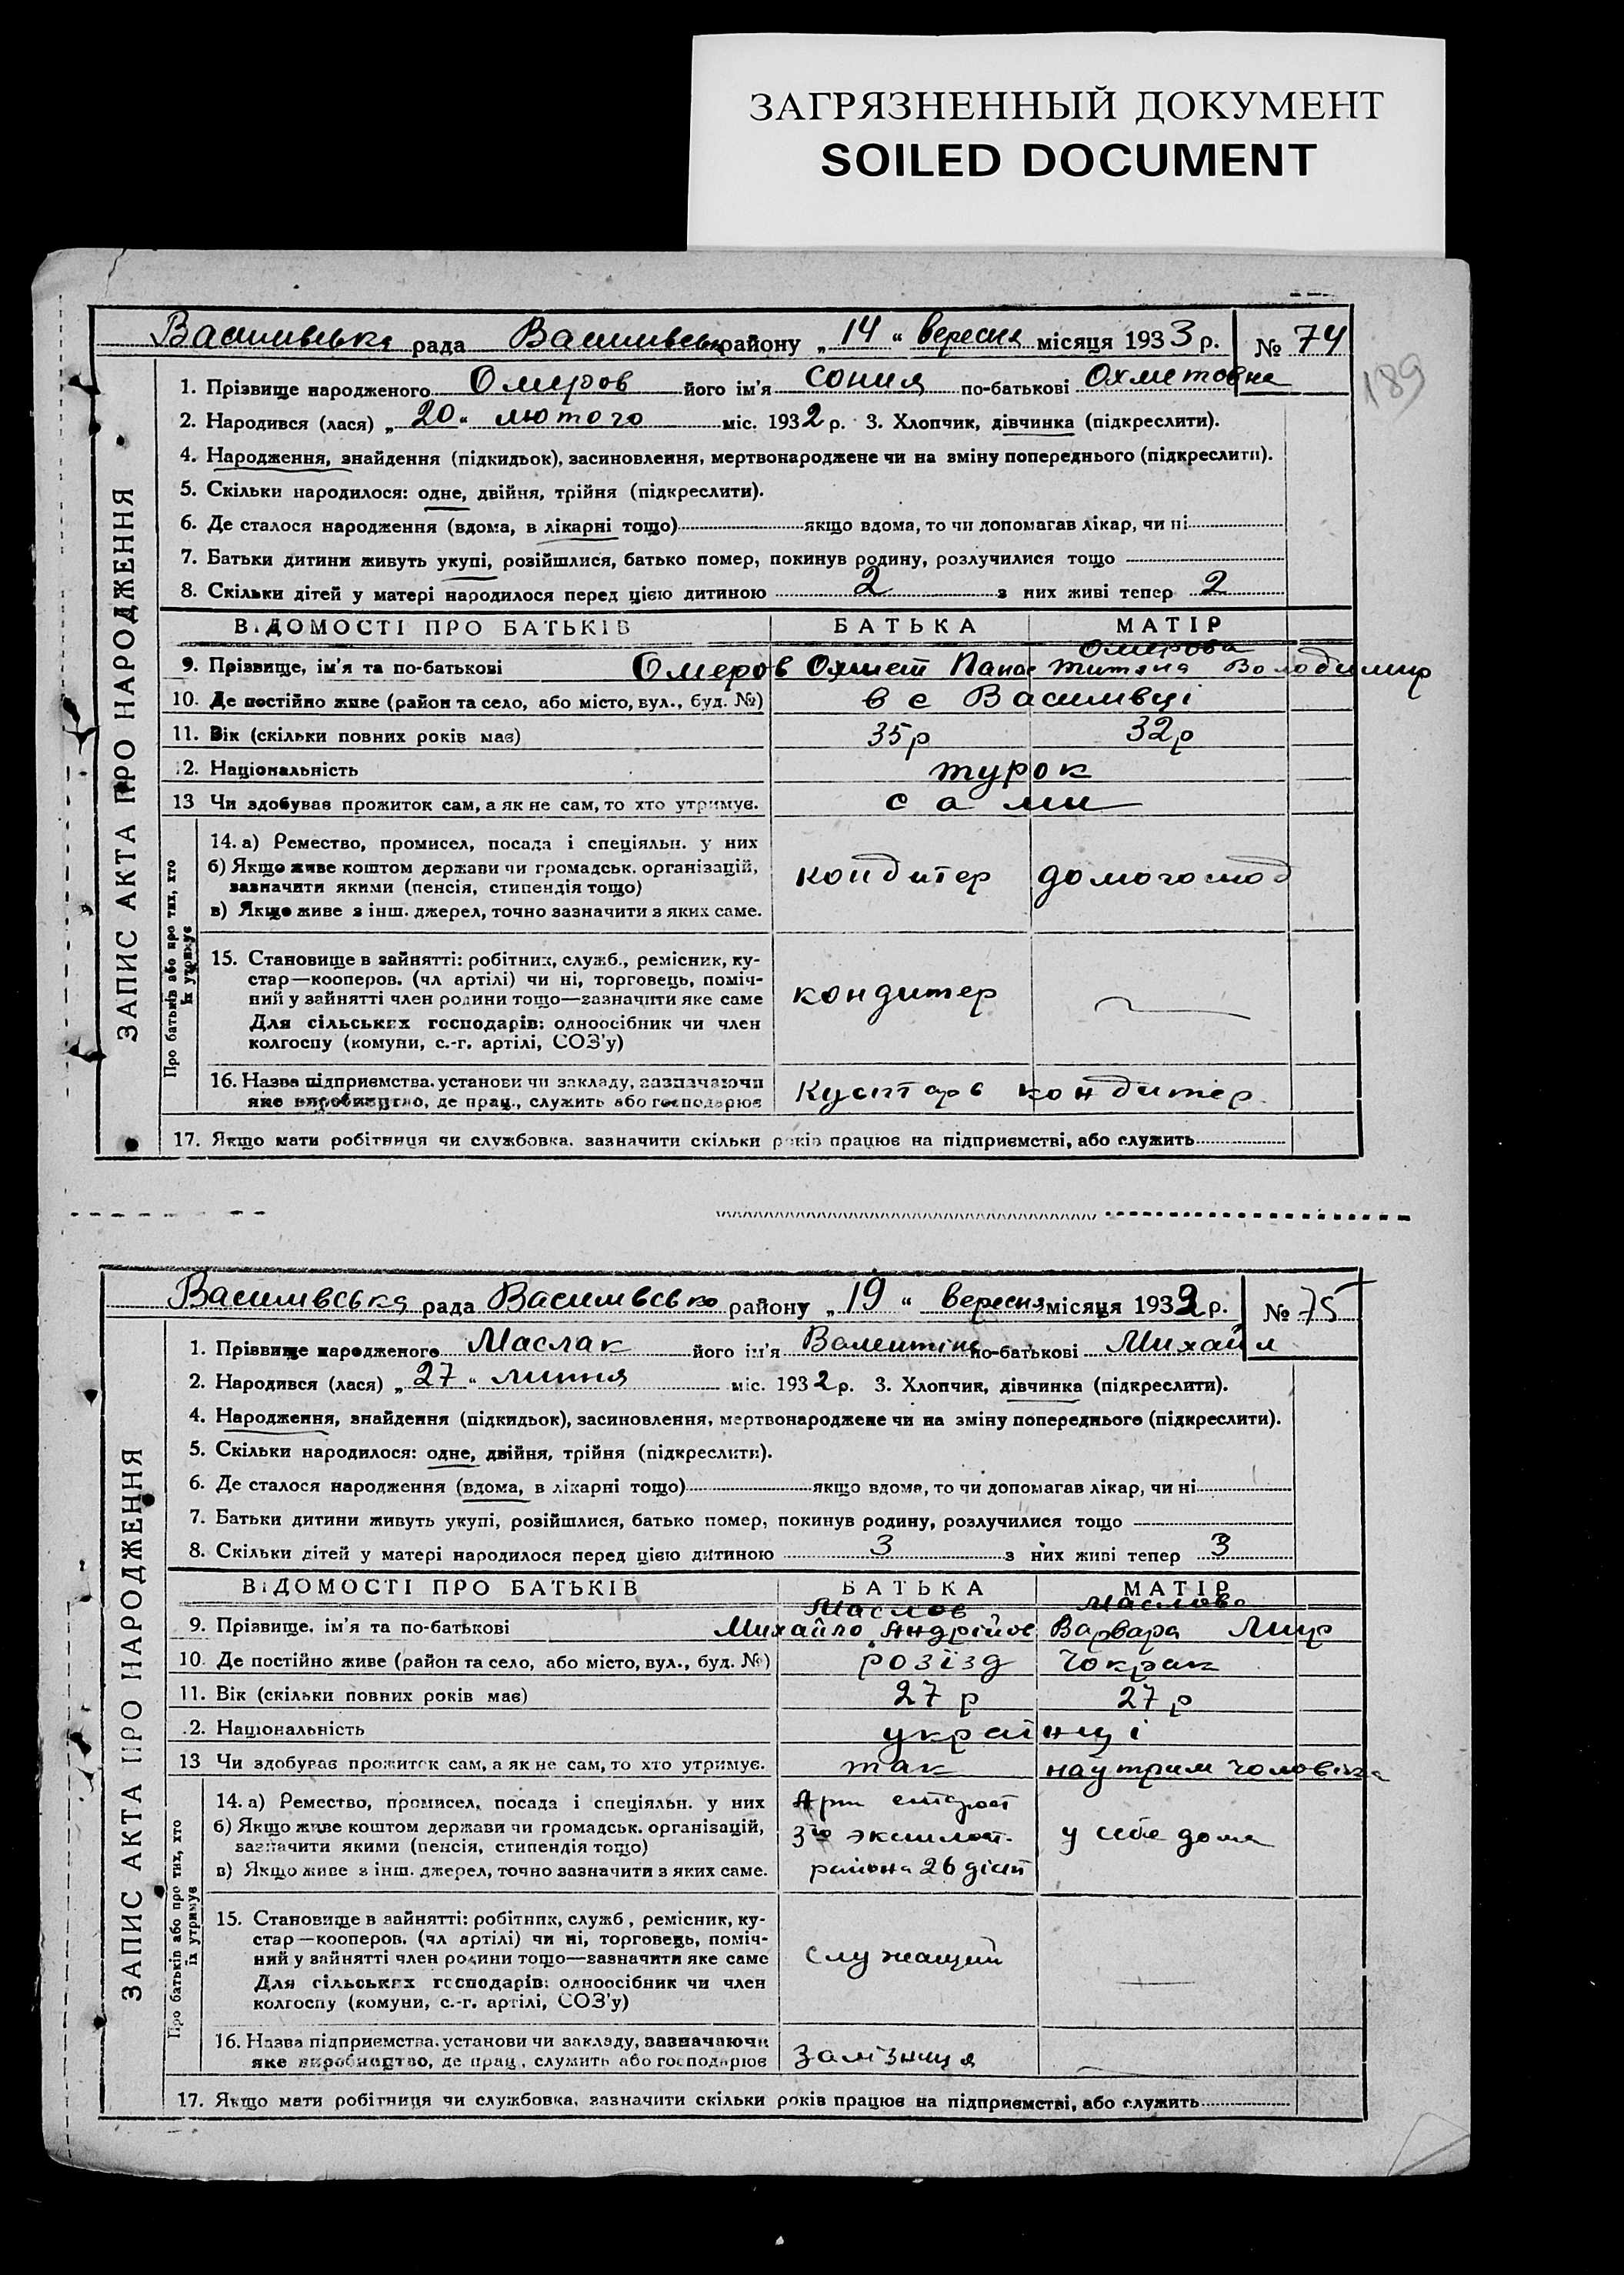 ЗАГРЯЗНЕННЫЙ ДОКУМЕНТ
SOILED DOCUMENT
189
ЗАПИС АКТА ПРО НАРОДЖЕННЯ
Василивська рада Василивськ району „14“ вересня місяця 1933 р. № 74
1. Прізвище народженого Омеров його ім'я Сония по-батькові Охметовна
2. Народився (лася) „20“ лютого міс. 1932 р. 3. Хлопчик, дівчинка (підкреслити).
4. Народження, знайдення (підкидьок), засиновлення, мертвонароджене чи на зміну попереднього (підкреслити).
5. Скільки народилося: одне, двійня, трійня (підкреслити).
6. Де сталося народження (вдома, в лікарні тощо) якщо вдома, то чи допомагав лікар, чи ні
7. Батьки дитини живуть укупі, розійшлися, батько помер, покинув родину, розлучилися тощо
8. Скільки дітей у матері народилося перед цією дитиною 2 з них живі тепер 2
ВІДОМОСТІ ПРО БАТЬКІВ БАТЬКА МАТІР
Омерова
9. Прізвище, ім'я та по-батькові Омеров Охмет Панас Титяна Володимир
10. Де постійно живе (район та село, або місто, вул., буд. №) в с Василивці
11. Вік (скільки повних років має) 35 р 32 р
12. Національність турок
13 Чи здобував прожиток сам, а як не сам, то хто утримує. сами
Про батьків або про тих, хто їх утримує
14. а) Ремество, промисел, посада і спеціяльн. у них
б) Якщо живе коштом держави чи громадськ. організацій,
зазначити якими (пенсія, стипендія тощо)
кондитер домогоспод
в) Якщо живе з інш. джерел, точно зазначити з яких саме.
15. Становище в зайнятті: робітник, служб., ремісник, ку-
стар—кооперов. (чл артілі) чи ні, торговець, поміч-
ний у зайнятті член родини тощо—зазначити яке саме
кондитер
Для сільських господарів: одноосібник чи член
колгоспу (комуни, с.-г. артілі, СОЗ'у)
16. Назва підприємства, установи чи закладу, зазначаючи
яке виробництво, де прац., служить або господарює
Кустарь кондитер
17. Якщо мати робітниця чи службовка, зазначити скільки років працює на підприємстві, або служить
ЗАПИС АКТА ПРО НАРОДЖЕННЯ
Василивська рада Василивсько району „19“ вересня місяця 1932 р. № 75
1. Прізвище народженого Маслак його ім'я Валентіна по-батькові Михайл
2. Народився (лася) „27“ липня міс. 1932 р. 3. Хлопчик, дівчинка (підкреслити).
4. Народження, знайдення (підкидьок), засиновлення, мертвонароджене чи на зміну попереднього (підкреслити).
5. Скільки народилося: одне, двійня, трійня (підкреслити).
6. Де сталося народження (вдома, в лікарні тощо) якщо вдома, то чи допомагав лікар, чи ні
7. Батьки дитини живуть укупі, розійшлися, батько помер, покинув родину, розлучилися тощо
8. Скільки дітей у матері народилося перед цією дитиною 3 з них живі тепер 3
ВІДОМОСТІ ПРО БАТЬКІВ БАТЬКА МАТІР
Маслов Маслова
9. Прізвище, ім'я та по-батькові Михайло Андрійов Варвара Мир
10. Де постійно живе (район та село, або місто, вул., буд. №) розізд Чокрак
11. Вік (скільки повних років має) 27 р 27 р
12. Національність українці
13 Чи здобував прожиток сам, а як не сам, то хто утримує. так на утрим чоловіка
Про батьків або про тих, хто їх утримує
14. а) Ремество, промисел, посада і спеціяльн. у них
б) Якщо живе коштом держави чи громадськ. організацій,
зазначити якими (пенсія, стипендія тощо)
в) Якщо живе з інш. джерел, точно зазначити з яких саме.
Арт старост
3го эксплот. у себе дома
района 26 діст
15. Становище в зайнятті: робітник, служб., ремісник, ку-
стар—кооперов. (чл артілі) чи ні, торговець, поміч-
ний у зайнятті член родини тощо—зазначити яке саме
служащий
Для сільських господарів: одноосібник чи член
колгоспу (комуни, с.-г. артілі, СОЗ'у)
16. Назва підприємства, установи чи закладу, зазначаючи
яке виробництво, де прац., служить або господарює
Залізниця
17. Якщо мати робітниця чи службовка, зазначити скільки років працює на підприємстві, або служить